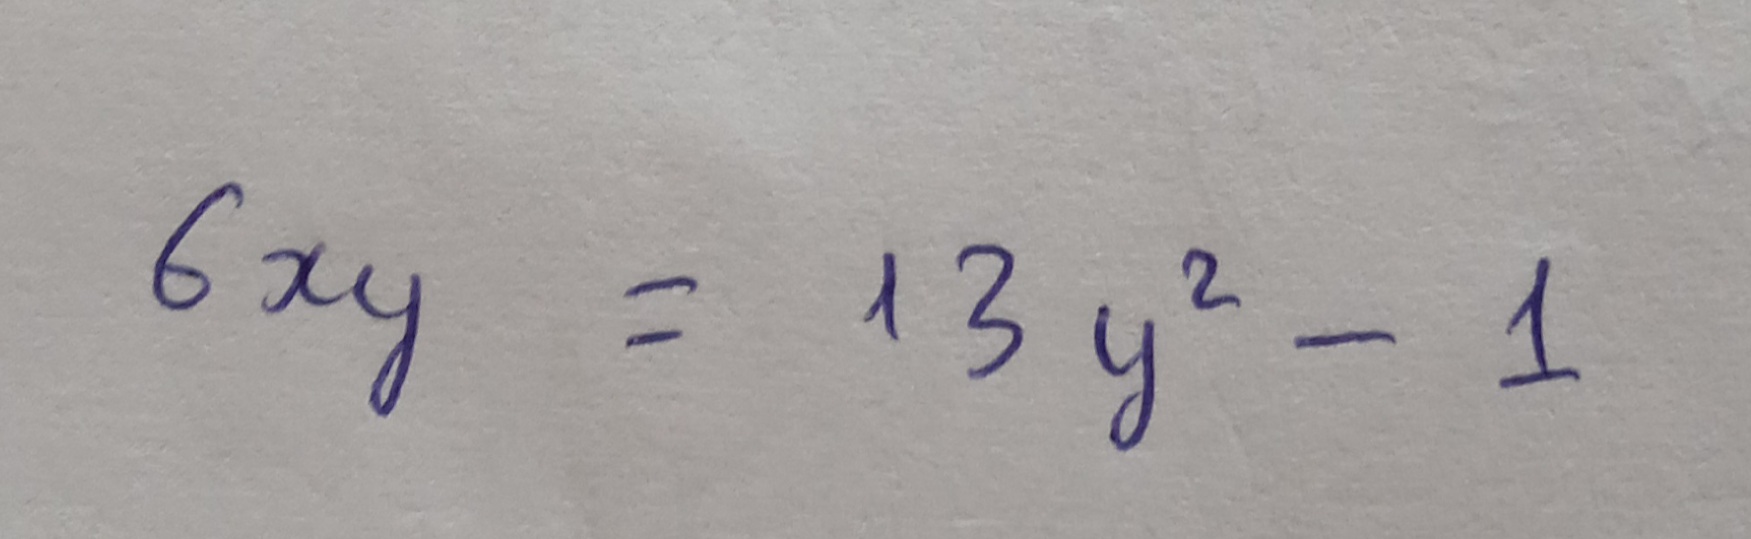 6xy = 13y² - 1